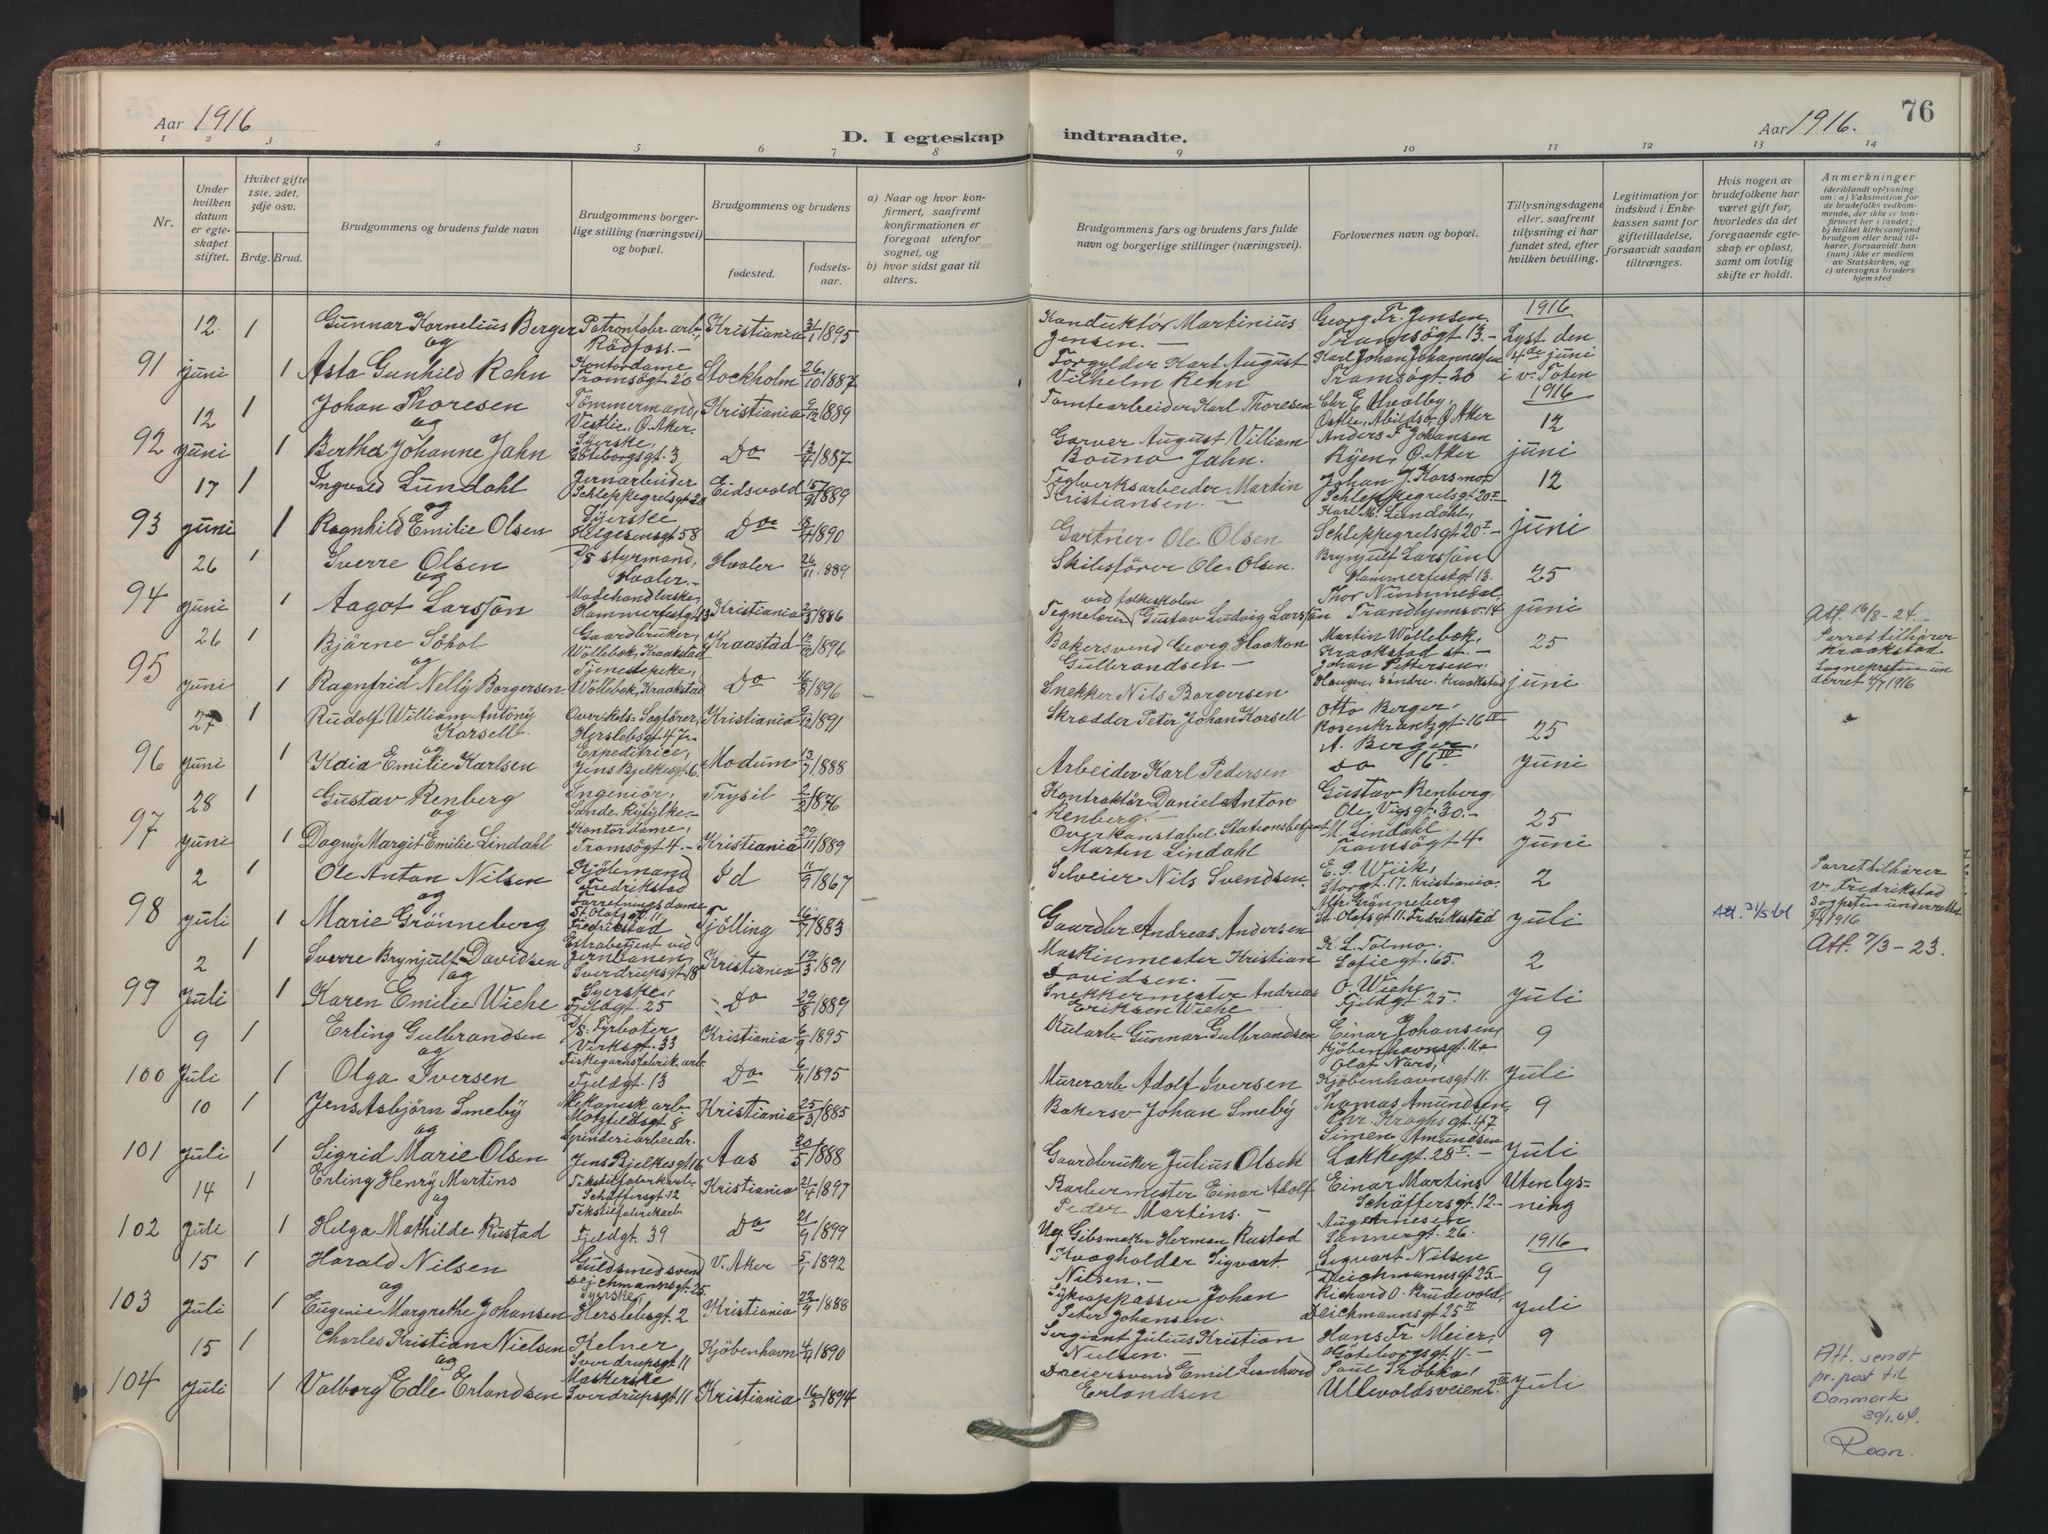 76
Aar 1916
D. I egteskap indtraadte.
Aar 1916.
1 2 3 4 5 6 7 8 9 10 11 12 13 14
Nr.
Under hvilken datum er egteskapet stiftet.
Hviket gifte 1ste, 2det, 3dje osv.
Brdg. Brud.
Brudgommens og brudens fulde navn
Brudgommens borgerlige stilling (næringsvei) og bopæl.
Brudgommens og brudens
fødested.
fødselsaar.
a) Naar og hvor konfirmert, saafremt konfirmationen er foregaat utenfor sognet, og
b) hvor sidst gaat til alters.
Brudgommens fars og brudens fars fulde navn og borgerlige stillinger (næringsvei).
Forlovernes navn og bopæl.
Tillysningsdagene eller, saafremt tillysning ei har fundet sted, efter hvilken bevilling.
Legitimation for indskud i Enkekassen samt for giftetilladelse, forsaavidt saadan tiltrænges.
Hvis nogen av brudefolkene har været gift før, hvorledes da det foregaaende egteskap er opløst, samt om lovlig skifte er holdt.
Anmerkninger
(deriblandt oplysning om: a) Vaksination for de brudefolks vedkommende, der ikke er konfirmert her i landet; b) hvilket kirkesamfund brudgom eller brud tilhører, forsaavidt han (hun) ikke er medlem av Statskirken, og c) utensogns bruders hjemsted
91 12 juni 1 Gunnar Kornelius Berger Patronfabr. arb, Rödfoss.- Kristiania 31/1 1895 Konduktör Martinius Jensen.- Georg Fr. Jensen. Tromsögt 13.- 1916 Lyst den
og
1 Asta Gunhild Rehn Kontordame Tromsögt 20 Stockholm 26/10 1887 Forgylder Karl August Vilhelm Rehn Karl Johan Johannessen Tromsögt. 20 4de juni i v. Toten
92 12 juni 1 Johan Thoresen Tömmermand, Vestlie, Ö. Aker. Kristiania 9/12 1889 Tomtearbeider Karl Thoresen Chr E Ulvalby, Östlie, Abildsö, Ö Aker 1916 12
og
1 Bertha Johanne Jahn Syerske, Göteborgsgt. 3 Do 13/4 1887 Garver August Villiam Bouno Jahn. Anders F Johansen Ryen, Ö. Aker juni
93 17 juni 1 Ingvald Lundahl Jernarbeider Schleppegrelsgt 20 Eidsvold 15/9 1889 Teglverksarbeider Martin Kristiansen.- Johan J. Korsmo, Schleppegrelsgt 20 I 12
og
1 Ragnhild Emilie Olsen Syerske Helgesensgt 58 Do 1890 Gartner Ole Olsen Karl M. Lundahl, Schleppegrelsgt 20 I - juni
94 26 juni 1 Sverre Olsen D/S styrmand, Hvaler.- Hvaler 26/11 1889 Skibsförer Ole Olsen. Brynjulf Larssön Hammerfestgt 13. 25
og
1 Aagot Larssön Modehandlerske, Hammerfestgt 13 Kristiania 2/3 1886 Tegnelærer ved folkeskolen Gustav Ludvig Larssön Thor Nummedal, Trondhjemsv. 14 juni
95 26 juni 1 Bjärne Söhol Gaardbruker, Vollebæk, Kraakstad Kraakstad 1896 Bakersvend Georg Haakon Gulbrandsen - Martin Vollebæk, Kraakstad st.- 25
og
1 Ragnfrid Nelly Borgersen Tjenestepike, Vollebæk, Kraakstad Do 16/8 1896 Snekker Nils Borgersen Johan Pettersen, Haugen, Söndre. Kraakstad juni
Att. 16/8-24. Parret tilhörer Kraakstad Sogneprsten underret 4/7 1916
96 27 juni 1 Rudolf William Antony Korsell. Overrets-Sagförer, Herslebsgt 47 Kristiania 9/12 1891 Skrædder Peter Johan Korsell Otto Berger, Rosenkrantzgt. 16 IV 25
og
1 Kaia Emilie Karlsen Expeditrice, Jens Bjelkesgt 6. Modum 13/7 1888 Arbeider Karl Pedersen A. Berger do 16 IV Juni
97 28 juni 1 Gustav Renberg Ingeniör, Sande. Ryfylke.- Trysil 2/2 1876 Kontraktör Daniel Anton Renberg.- Gustav Renberg Ole Vigsgt. 30.- 25
og
1 Dagny Margit Emilie Lindahl Kontordame, Tromsögt 4.- Kristiania 29/11 1889 Overkonstabel Stationsbetjent Marten Lindahl M. Lindahl. Tromsögt 4 Juni
98 2 juli 1 Ole Anton Nilsen Sjömand Fredrikstad Id 11/9 1867 Selveier Nils Svendsen. E. P. Wiik, Storgt. 17. Kristiania. 2
og
1 Marie Grönneberg Forretningsdame St. Olafsgt 11, Fredrikstad Tjölling 16/7 1883 Gaardbr Andreas Andersen Mfr. Grönneberg St. Olafsgt 11 Fredrikstad juli
Att. 31/5 61
Parret tilhörer v. Fredrikstad Sogpsten underrettet 3/7 1916
Att. 7/3-23.
99 2 Juli 1 Sverre Brynjulf Davidsen Extrabetjent ved jernbanen, Sverdrupsgt. 18 Kristiania 19/3 1891 Maskinmester Kristian Davidsen.- K. L. Tolmo. Sofiegt. 65. 2
og
1 Karen Emilie Wiehe Syerske, Fjeldgt. 25 Do 29/8 1889 Snekkermester Andreas Eriksen Wiehe O. Wiehe Fjeldgt 25. juli
100 9 Juli 1 Erling Gulbrandsen D/S. Fyrböter Verksgt. 33 Kristiania 6/9 1895 Kularb Gunnar Gulbrandsen Einar Johansen, Kjöbenhavnsgt. 11a 9
og
1 Olga Iversen Fiskegarnsfabrik.arb. Fjeldgt. 13 Do 6/11 1895 Murerarb Adolf Iversen Olaf Nard, Kjöbenhavnsgt 11. juli
101 10 juli 1 Jens Asbjörn Smeby Mekanisk arb Motzfeldsgt 8 Kristiania 25/3 1885 Bakersv Johan Smeby Thomas Amundsen, Chr. Kroghsgt 47. 9
og
1 Sigrid Marie Olsen Spinderiarbeidr. Jens Bjelkesgt 16 Aas 20/5 1888 Gaardbruker Julius Olsen Simen Amundsen Lakkegt. 28 I.- juli
102 14 Juli 1 Erling Henry Martins Tekstilfabrikarb. Schäffersgt. 12 Kristiania 21/4 1897 Barbermester Einar Adolf Peder Martins.- Einar Martins Schäffersgt. 12.- Uten lysning
og
1 Helga Mathilde Rustad Tekstilfabrikarb Fjeldgt. 39 Do 21/9 1899 Ug. Gibsmaker Herman Rustad Aug Arnesen Sannergt. 26.
103 15 Juli 1 Harald Nilsen Guldsmedsvend Deichmannsgt. 25. V. Aker 5/1 1892 Kvægholder Sigvart Nilsen.- Sigvart Nilsen Deichmannsgt. 25.- 1916 9
og
1 Eugenie Margrethe Johansen Syerske, Herslebsgt. 2 Kristiania 22/9 1888 Fyrpasser Johan Peter Johansen. Richard O. Krudevold, Deichmannsgt 25 II juli
104 15 Juli 1 Charles Kristian Nielsen Kelner Sverdrupsgt 11 Kjöbenhavn 4/4 1890 Sergiant Julius Kristian Nielsen.- Hans Fr. Meier, Göteborgsgt. 11.- 9
og
1 Valborg Edle Erlandsen Maskerske Sverdrupsgt 11 Kristiania 16/5 1894 Dreiersvend Emil Leonhard Erlandsen Poul Trobka, Ullevoldsveien 2 III juli
Att. sendt pr. post til Danmark 30/1.64. Roan.